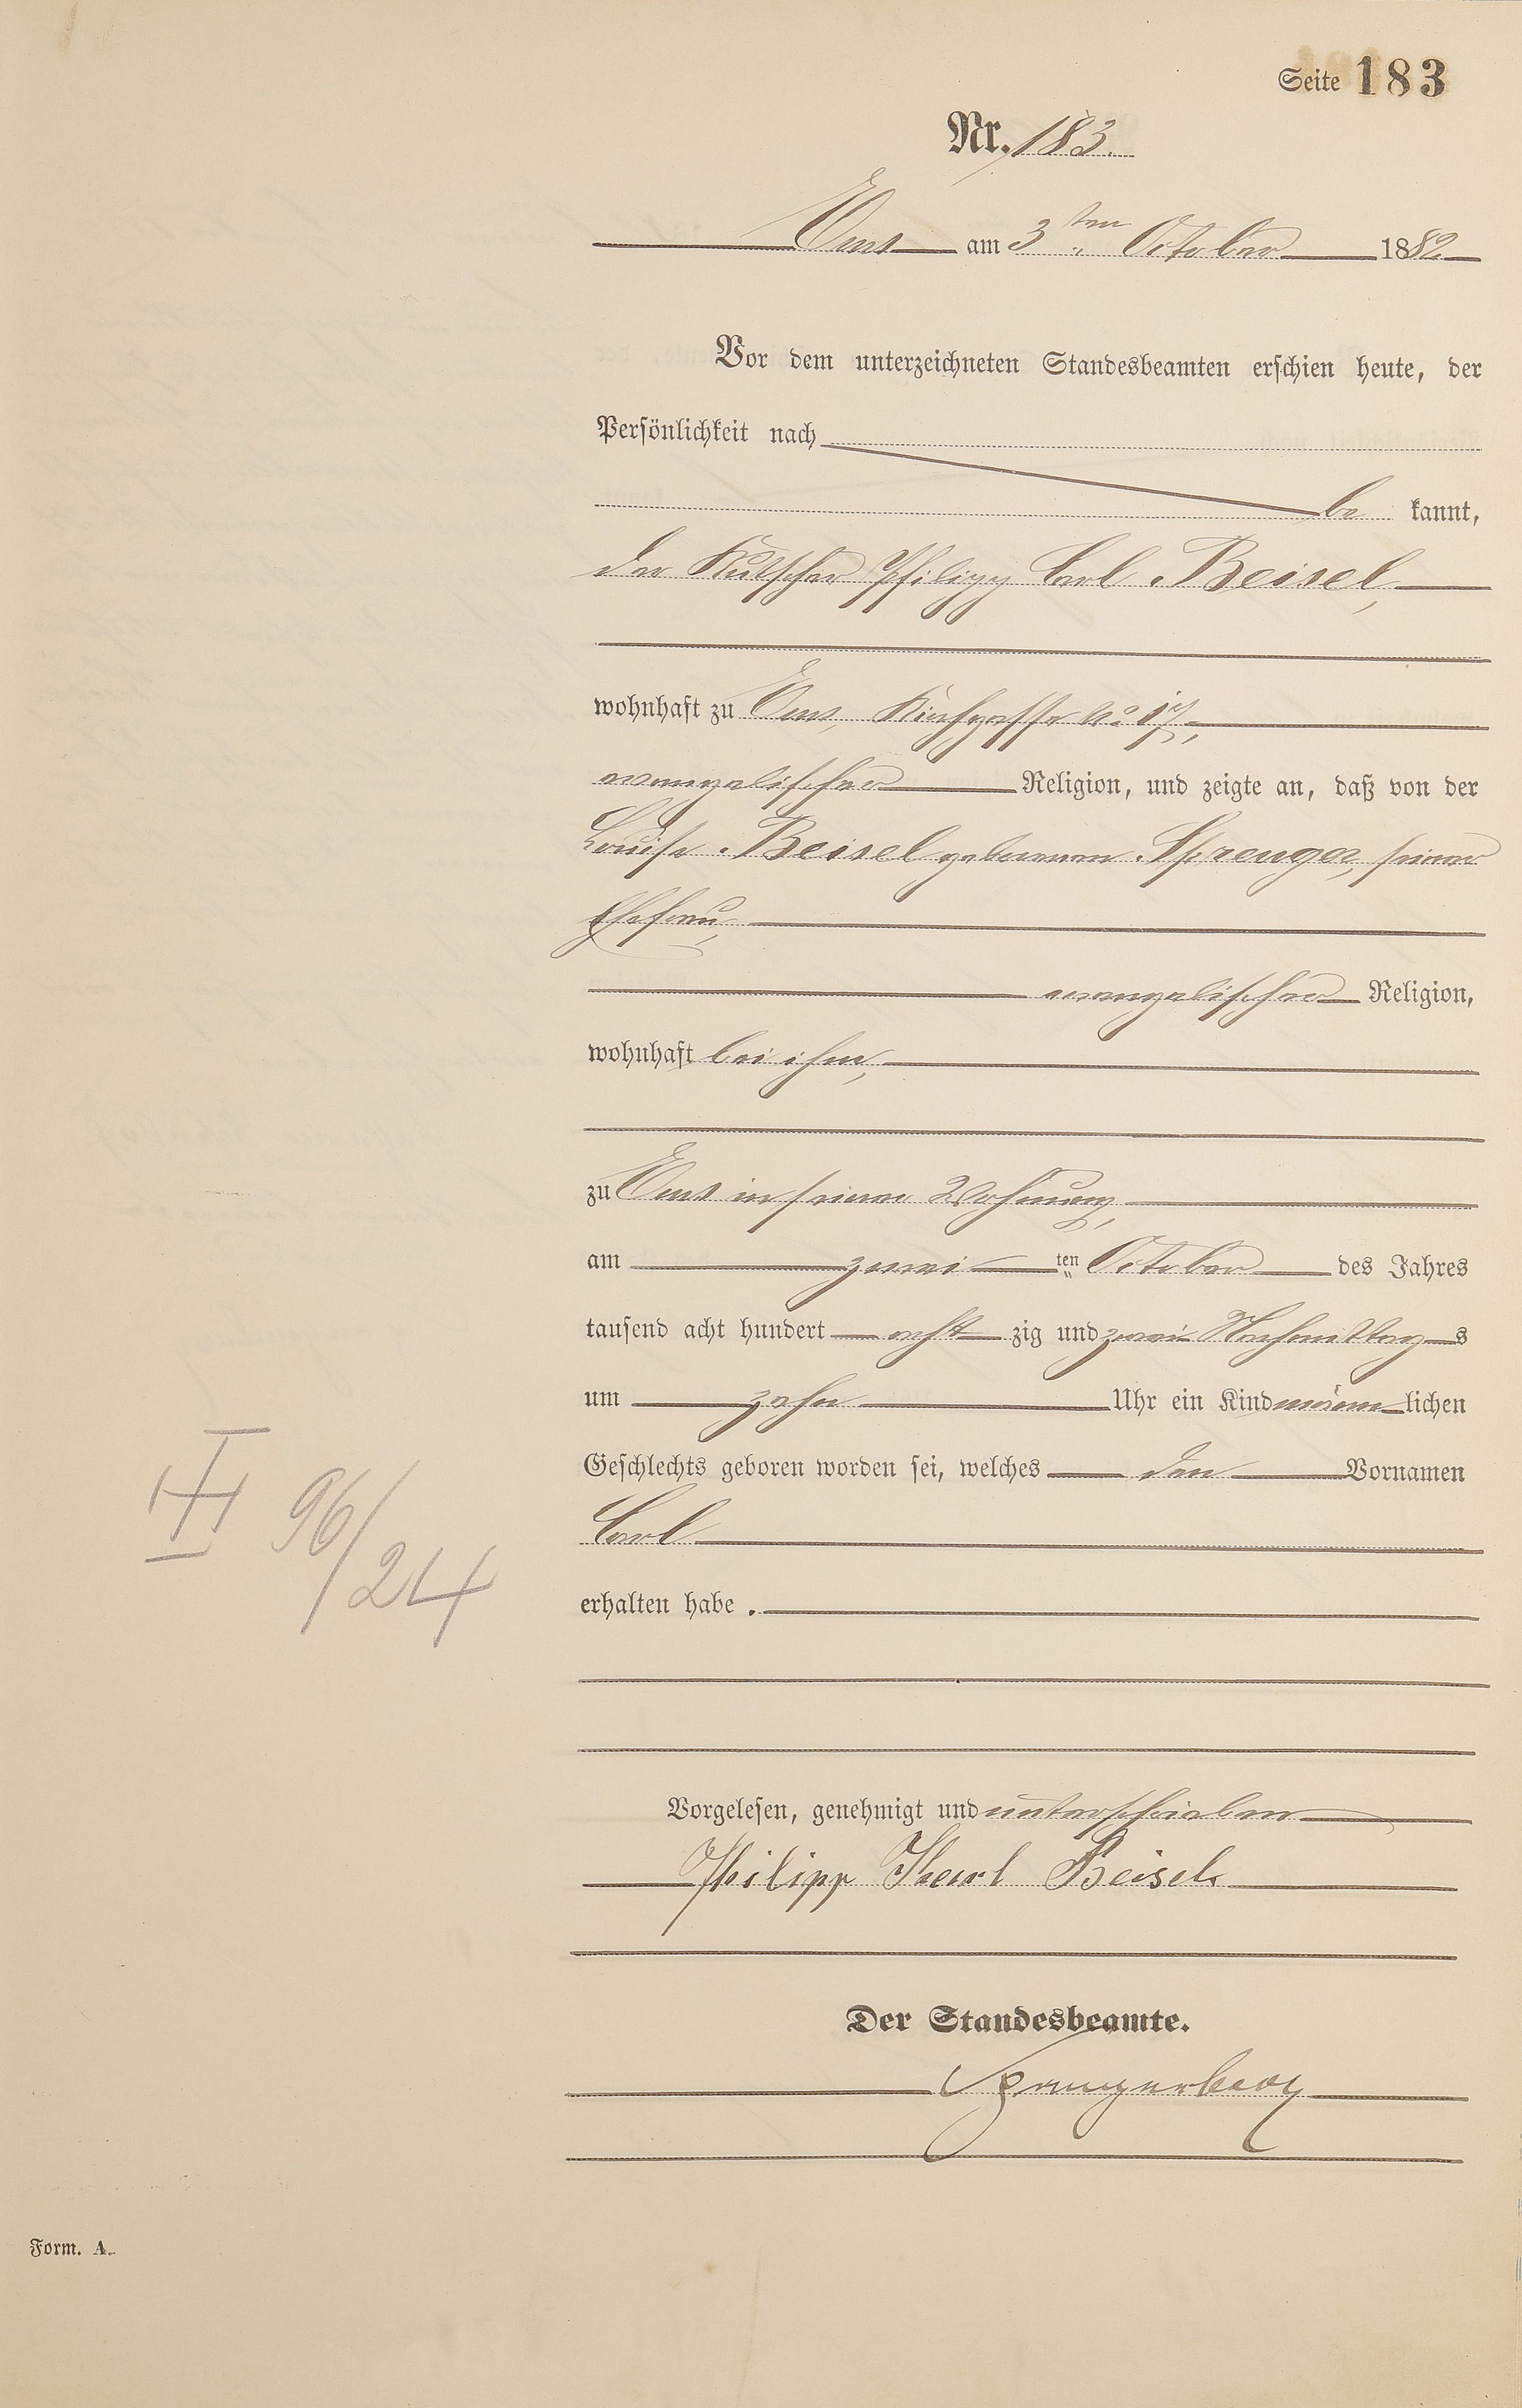 Seite 183
Nr. 183.
Ems am 3ten October 1882
Vor dem unterzeichneten Standesbeamten erschien heute, der
Persönlichkeit nach
be kannt,
der Kutscher Philipp Carl Beisel,
wohnhaft zu Ems, Kirchgasse No 17,
evangelischer Religion, und zeigte an, daß von der
Louise Beisel geborenen Sprenger, seiner
Ehefrau,
evangelischer Religion,
wohnhaft bei ihm,
zu Ems in seiner Wohnung,
am zwei ten October des Jahres
tausend acht hundert acht zig und zwei Nachmittag s
um zehn Uhr ein Kind männ lichen
Geschlechts geboren worden sei, welches den Vornamen
Carl
erhalten habe.
96/24
Vorgelesen, genehmigt und unterschrieben
Philipp Karl Beisel.
Der Standesbeamte.
Form. A.